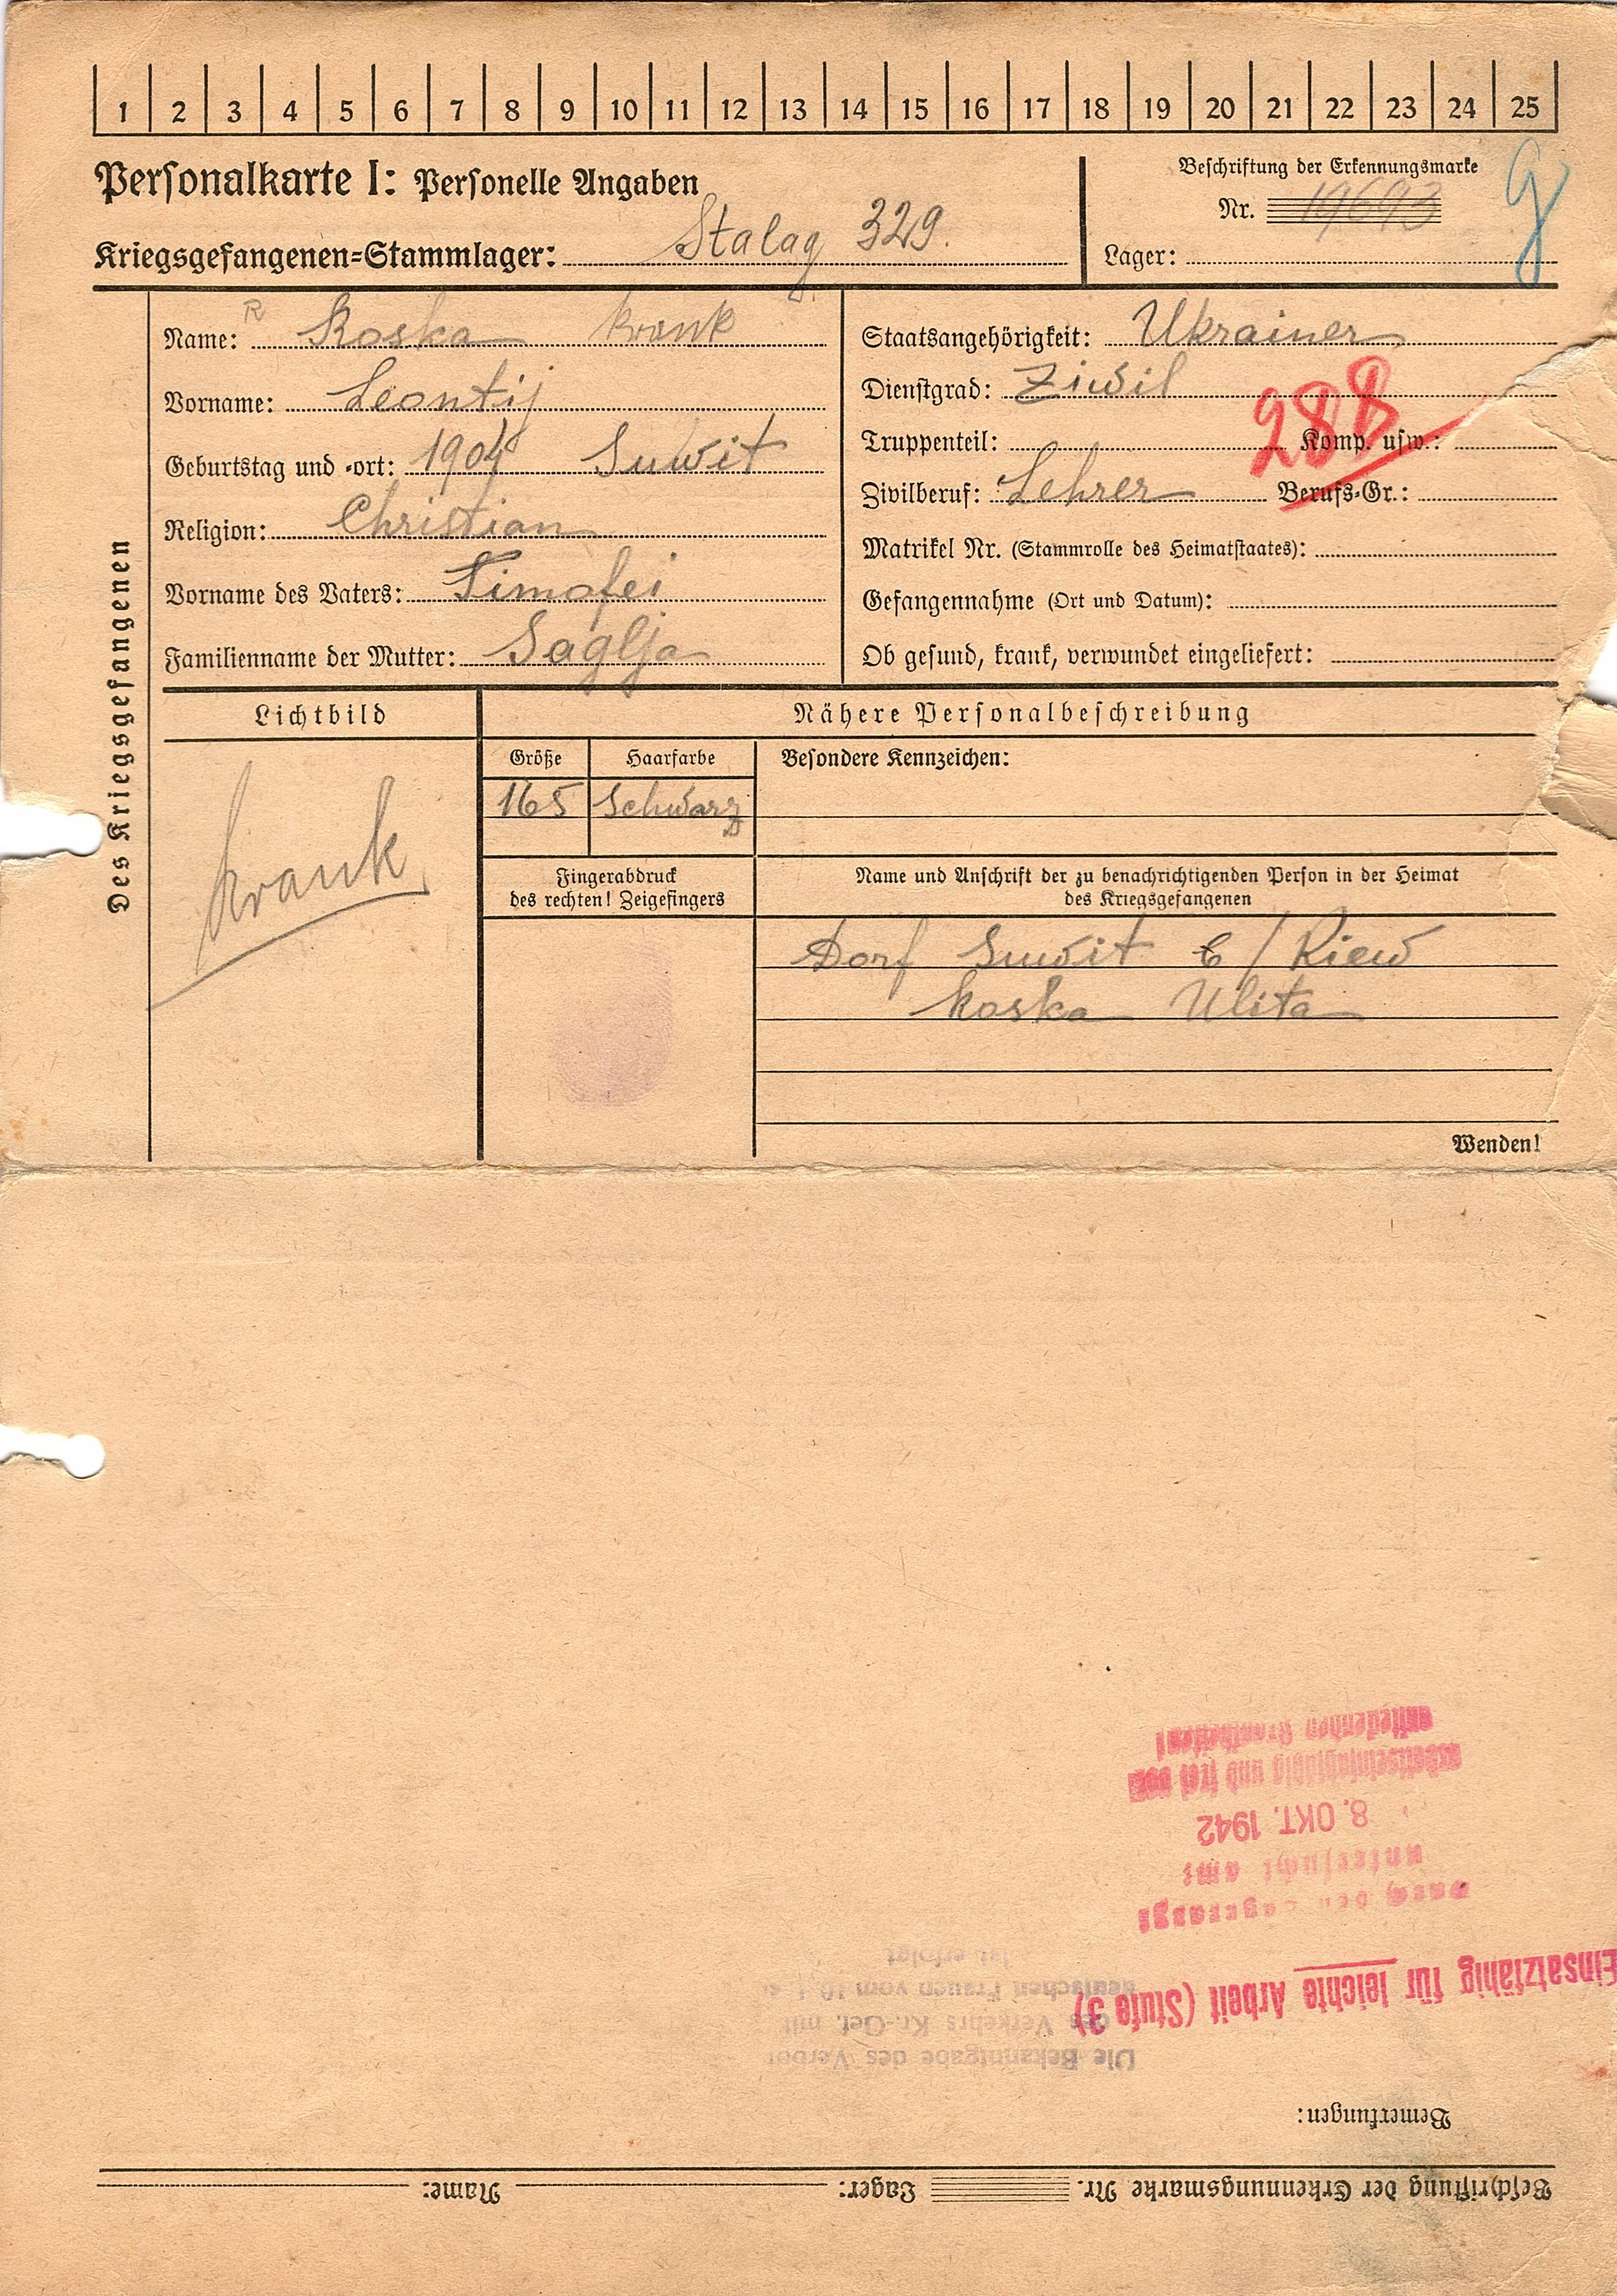 1 2 3 4 5 6 7 8 9 10 11 12 13 14 15 16 17 18 19 20 21 22 23 24 25
Personalkarte I: Personelle Angaben
Kriegsgefangenen-Stammlager: Stalag 329.
Beschriftung der Erkennungsmarke
Nr. 19693
Lager:
g
Des Kriegsgefangenen
R
Name: Koska krank
Vorname: Leontij
Geburtstag und -ort: 1904 Suwit
Religion: Christian
Vorname des Vaters: Timofei
Familienname der Mutter: Saglja
Staatsangehörigkeit: Ukrainer
Dienstgrad: Ziwil
Truppenteil: Komp. usw.:
288
Zivilberuf: Lehrer Berufs-Gr.:
Matrikel Nr. (Stammrolle des Heimatstaates):
Gefangennahme (Ort und Datum):
Ob gesund, krank, verwundet eingeliefert:
Lichtbild
krank
Nähere Personalbeschreibung
Größe Haarfarbe
165 Schwarz
Besondere Kennzeichen:
Fingerabdruck
des rechten! Zeigefingers
Name und Anschrift der zu benachrichtigenden Person in der Heimat
des Kriegsgefangenen
Dorf Suwit b/Kiew
Koska Ulita
Wenden!
Beschriftung der Erkennungsmarke Nr. Lager: Name:
Bemerkungen:
Einsatzfähig für leichte Arbeit (Stufe 3)
Die Bekanntgabe des Verbot
des Verkehrs Kr.-Gef. mit
deutschen Frauen vom 10.
ist erfolgt
untersucht am:
8. OKT. 1942
arbeitseinsatzfähig und frei von
ansteckenden Krankheiten!